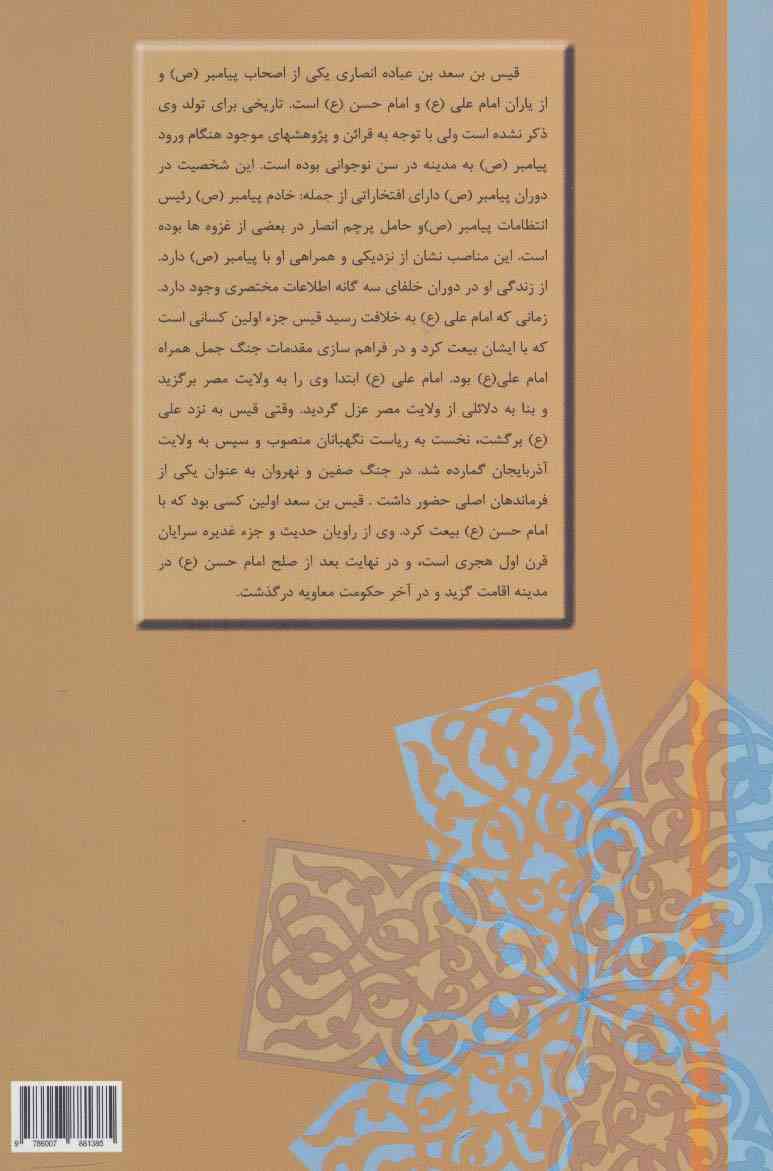 قیس بن سعد بن عباده انصاری یکی از اصحاب پیامبر (ص) و
از یاران امام علی (ع) و امام حسن (ع) است. تاریخی برای تولد وی
ذکر نشده است ولی با توجه به قرائن و پژوهشهای موجود هنگام ورود
پیامبر (ص) به مدینه در سن نوجوانی بوده است. این شخصیت در
دوران پیامبر (ص) دارای افتخاراتی از جمله: خادم پیامبر (ص) رئیس
انتظامات پیامبر (ص)و حامل پرچم انصار در بعضی از غزوه ها بوده
است. این مناصب نشان از نزدیکی و همراهی او با پیامبر (ص) دارد.
از زندگی او در دوران خلفای سه گانه اطلاعات مختصری وجود دارد.
زمانی که امام علی (ع) به خلافت رسید قیس جزء اولین کسانی است
که با ایشان بیعت کرد و در فراهم سازی مقدمات جنگ جمل همراه
امام علی(ع) بود. امام علی (ع) ابتدا وی را به ولایت مصر برگزید
و بنا به دلائلی از ولایت مصر عزل گردید. وقتی قیس به نزد علی
(ع) برگشت، نخست به ریاست نگهبانان منصوب و سپس به ولایت
آذربایجان گمارده شد. در جنگ صفین و نهروان به عنوان یکی از
فرماندهان اصلی حضور داشت . قیس بن سعد اولین کسی بود که با
امام حسن (ع) بیعت کرد. وی از راویان حدیث و جزء غدیره سرایان
قرن اول هجری است، و در نهایت بعد از صلح امام حسن (ع) در
مدینه اقامت گزید و در آخر حکومت معاویه درگذشت.
9 786007 881385